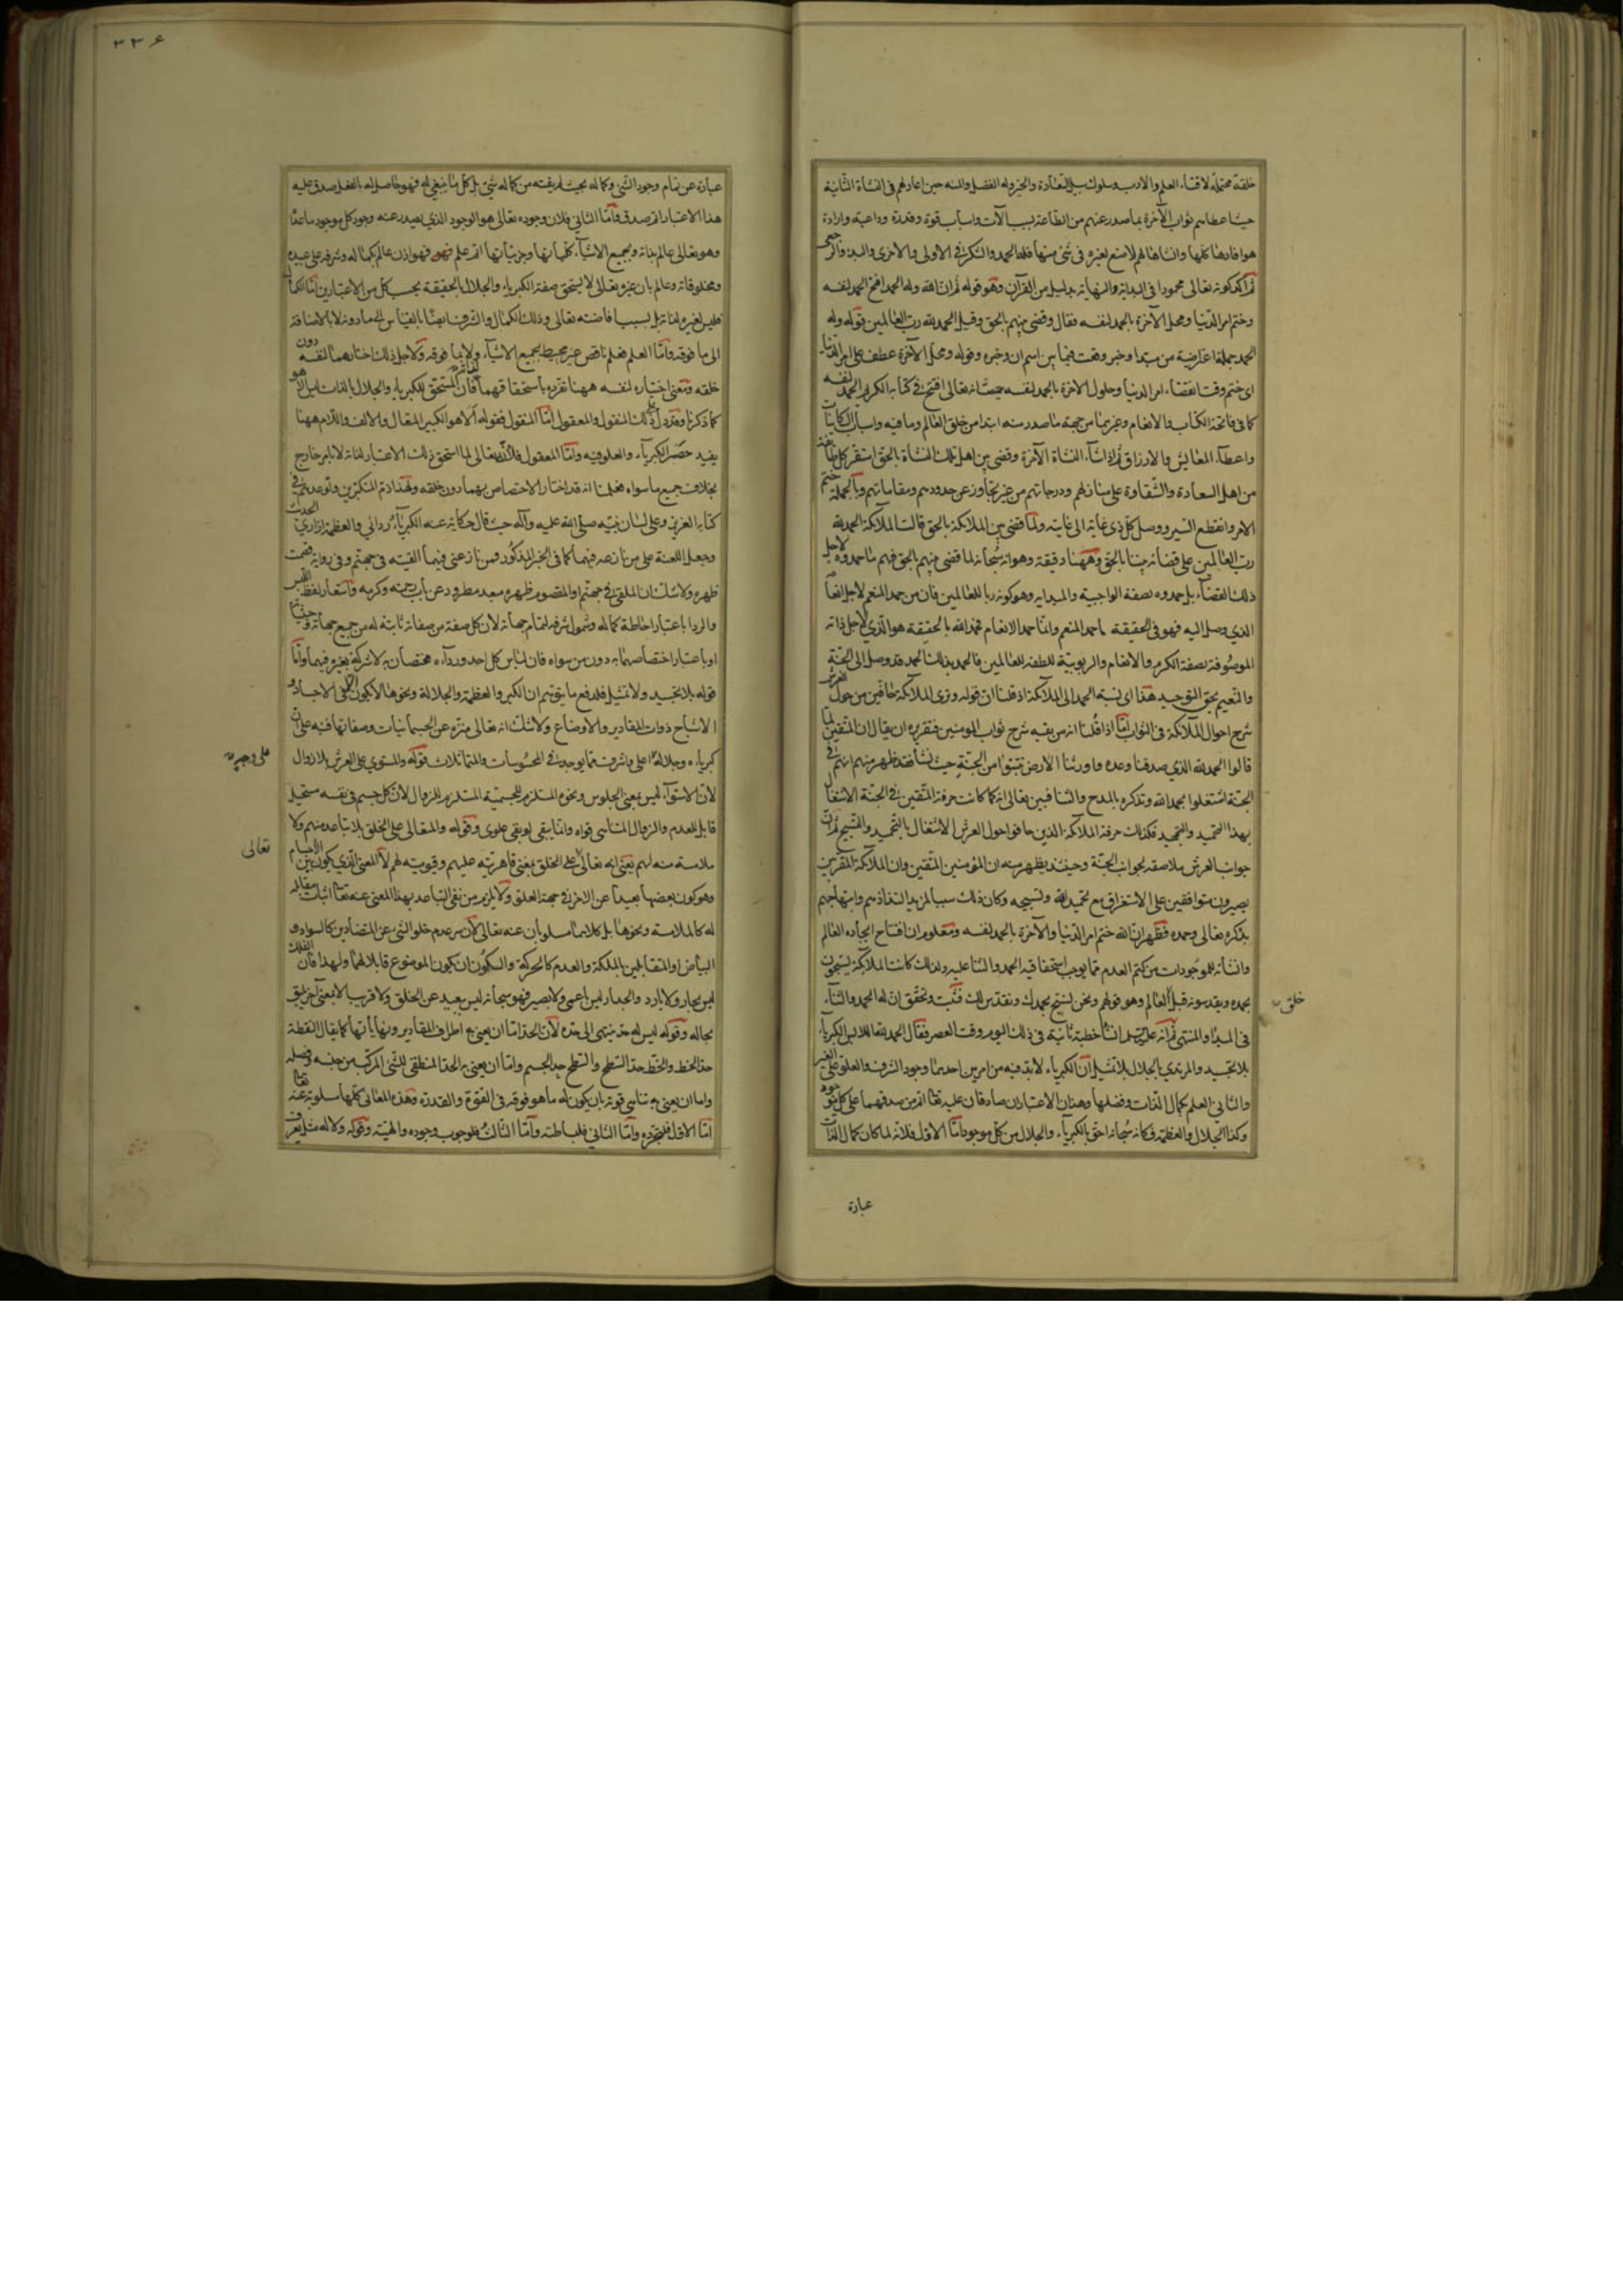 خلقة محتملة لاقتناء العلم والادب وسلوك سبيل السعادة والخير وله الفضل والمنه حين اعادهم فى النشأة الثانية
حيث اعطاهم ثواب الآخرة بما صدر عنهم من الطاعة بسبب آلات واسباب قوة وقدرة وداعية وارادة
هو افادها كلها وانشاها لهم لا صنع لغيره فى شئ منها فله الحمد والشكر فى الاولى والاخرى والبدو والرجعى
ثم اكد كونه تعالى محمودا فى البداية والنهاية بدليل من القرآن وهو قوله ثم ان الله وله الحمد افتتح الحمد لنفسه
وختم امر الدنيا ومحل الآخرة بالحمد لنفسه فقال وقضى بينهم بالحق وقيل الحمد لله رب العالمين قوله وله
الحمد جملة اعتراضية من مبتدا وخبر وقعت فيما بين اسم ان وخبره وقوله ومحل الآخرة عطف على امر الدنيا
اى ختم وقت انقضاء امر الدنيا وحلول الآخرة بالحمد لنفسه حيث انه تعالى افتتح فى كتابه الكريم الحمد لنفسه
كما فى فاتحة الكتاب والانعام وغيرهما من جهة ما صدر منه ابتداء من خلق العالم وما فيه واسباب الكائنات
واعطاء المعايش والارزاق ثم اذا انشاء النشاة الآخرة وقضى بين اهل تلك النشاة بالحق استقر كل طائفة
من اهل السعادة والشقاوة على منازلهم ودرجاتهم من غير تجاوز عن حدودهم ومقاماتهم وبالجملة ختم
الامر وانقطع السير ووصل كل ذى غاية الى غايته ولما قضى بين الملائكة بالحق قالت الملائكة الحمد لله
رب العالمين على قضائه بيننا بالحق وههنا دقيقة وهو انه سبحانه لما قضى بينهم بالحق فهم ما حمدوه لاجل
ذلك القضاء بل حمدوه بصفة الواجبية والمبدايه وهو كونه ربا للعالمين فان من حمد المنعم لاجل انعام
الذى وصل اليه فهو فى الحقيقة ما حمد المنعم وانما حمد الانعام فحمد الله بالحقيقة هو الذى لاجل ذاته
الموصوفة بصفة الكرم والانعام والربوبية المطلقة للعالمين فالحمد بذلك الحمد قد وصل الى الجنة
والنعيم بحق التوحيد هذا اى نسبة الحمد الى الملائكة اذ قلنا ان قوله وترى الملائكة حافين من حول العرش
شرح احوال الملائكة فى الثواب اما اذا قلنا انه من بقية شرح ثواب المومنين فتقريره ان يقال ان المتقين لما
قالوا الحمد لله الذى صدقنا وعده واورثنا الارض نتبوا من الجنة حيث نشاء فقد ظهر منهم انهم فى
الجنة اشتغلوا بحمد الله وتذكره بالمدح والثناء فبين تعالى انه كما كانت حرفة المتقين فى الجنة الاشتغال
بهذا التحميد والتمجيد فكذلك حرفة الملائكة الذين حافوا حول العرش الاشتغال بالتحميد والتسبيح ثم ان
جوانب العرش ملاصقة لجوانب الجنة وحينئذ يظهر منه ان المؤمنين المتقين وان الملائكة المقربين
يصيرون متوافقين على الاستغراق مع تحميد الله وتسبيحه وكان ذلك سببا لمزيد التذاذهم وابتهاجهم
بذكره تعالى وحمده فظهر ان الله ختم امر الدنيا والآخرة بالحمد لنفسه ومعلوم ان افتتاح ايجاده العالم
وانشائه للموجودات من كتم العدم مما يوجب استحقاقيه الحمد والثناء عليه ولذلك كانت الملائكة يسبحون
بحمده ويقدسونه قبل العالم وهو قولهم ونحن نسبح بحمدك ونقدس لك فثبت وتحقق ان له الحمد والثناء
خلق صح
فى المبدأ والمنتهى ثم انه عليه السلم انشأ خطبة ثانية فى ذلك اليوم وقت العصر فقال الحمد لله اللابس الكبرياء
بلا تجسيد والمرتدى بالجلال بلا تمثيل ان الكبرياء لا بد فيه من امرين احدهما وجود الشرف والعلو على الغير
والثانى العلم بكمال الذات وفضلها وهذان الاعتباران صادقان عليه تعالى اتم من صدقهما على كل موجود
وكذا الجلال والعظمة فكانه سبحانه احق بالكبرياء والجلال من كل موجود اما الاول فلانه لما كان كمال الذات
عبارة
۳۳۶
عبارة عن تمام وجود الشئ وكماله بحيث لم يفته من كماله شئ بل كل ما ينبغى له فهو حاصل له بالفعل صدق عليه
هذا الاعتبار اتم صدق واما الثانى فلان وجوده تعالى هو الوجود الذى يصدر عنه وجود كل موجود ما عداه
وهو تعالى عالم بذاته وبجميع الاشياء كلياتها وجزئياتها اتم علم فهو اذن عالم بكماله وشرفه على عبيده
ومخلوقاته وعالم بان غيره تعالى لا يستحق صفة الكبرياء والجلال بالحقيقة بحسب كل من الاعتبارين اما الكمال
فليس لغيره لذاته بل بسبب افاضته تعالى وذلك الكمال والشرف ايضا بالقياس الى ما دونه لا بالاضافة
الى ما فوقه واما العلم فعلم ناقص غير محيط بجميع الاشياء ولا بما فوقه ولاجل ذلك اختارهما لنفسه دون
خلقه ومعنى اختياره لنفسه ههنا تفرده باستحقاقهما لذاته فان المستحق للكبرياء والجلال بالذات ليس الا هو
كما ذكرنا وقد دل على ذلك المنقول والمعقول اما المنقول فقوله الا هو الكبير المتعال والالف واللام ههنا
يفيد حصر الكبرياء والعلو فيه واما المعقول فلانه تعالى لما استحق ذلك الاعتبار لذاته لا بامر خارج
بخلاف جميع ما سواه فعلمنا انه قد اختار الاختصاص بهما دون خلقه ولهذا ذم المتكبرين وتوعدهم فى
كتابه العزيز وعلى لسان نبيه صلى الله عليه وآله حيث قال حكاية عنه الكبرياء ردائى والعظمة ازارى الحديث
وجعل اللعنة على من نازعه فيهما كما فى الخبر المذكور فمن نازعنى فيهما القيته فى جهنم وفى رواية قصمت
ظهره ولا شك ان الملقى فى جهنم والمقصوم ظهره مبعد مطرود عن باب رحمته وكرمه واستعار لفظ اللبس
والردا باعتبار احاطة كماله وشمول شرفه لتمام جهاته لان كل صفة من صفاته ثابتة له من جميع جهاته وحيثياته
او باعتبار اختصاصهما به دون من سواه فان لباس كل احد ورداءه مختصان به لا شركة لغيره فيهما واما
قوله بلا تجسيد ولا تمثيل فلدفع ما يتوهم ان الكبر والعظمة والجلالة ونحوها لا يكون الا فى الاجساد و
الاشباح ذوات المقادير والاوضاع ولا شك انه تعالى منزه عن الجسمانيات وصفاتها فنبه على ان
كبرياءه وجلاله اعلى واشرف مما يوجد فى المحسوسات والمتماثلات قوله والمستوى على العرش بلا زوال
على وجه صح
لان الاستواء ليس بمعنى الجلوس ونحوه المستلزم للجسمية المستلزم للزوال لان كل جسم فى نفسه مستحيل
قابل للعدم والزوال المتناهى قواه وانما يبقى لو بقى علوى وقوله والمتعالى على الخلق بلا تباعد منهم ولا
تعالى
ملامسة منه لهم يعنى انه تعالى على الخلق بمعنى قاهريته عليهم وقيوميته لهم لا المعنى الذى يكون بين الاجسام
وهو كون بعضها بعيدا عن الاخر فى جهة العلو ولا يلزم من نفى التباعد بهذا المعنى عنه تعالى اثبات مقابله
له كالملامسة ونحوها بل كلاهما مسلوبان عنه تعالى لان من عدم خلو الشئ عن المتضادين كالسواد و
البياض او المتقابلين بالملكة والعدم كالحركة والسكون ان تكون الموضوع قابلا لهما ولهذا فان الفلك
ليس بحار ولا بارد والجدار ليس باعمى ولا بصير فهو سبحانه ليس ببعيد عن الخلق ولا قريب الا بمعنى آخر يليق
بجاله وقوله ليس له حد ينتهى الى حده لان الحد اما ان يعنى به اطراف المقادير ونهاياتها كما يقال النقطة
حد الخط والخط حد السطح والسطح حد الجسم واما ان يعنى به الحد المنطقى للشئ المركب من جنسه وفصله
واما ان يعنى به تناهى قوته بان يكون له ما هو فوقه فى القوة والقدرة وهذه المعانى كلها مسلوبة عنه تعالى
اما الاول فلتجرده واما الثانى فلبساطته واما الثالث فلوجوب وجوده والهيته وقوله ولا له مثل يعرف